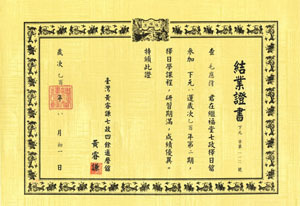 結業證書
查 毛應偉 君在繼福堂七政擇日館
參加 下元八運歲次乙酉年第二期
擇日學課程,研習期萬,成績優異。
特頒此證
臺灣黃睿謙七政四餘通曆館
黃睿謙
歲次乙酉年八月初一日